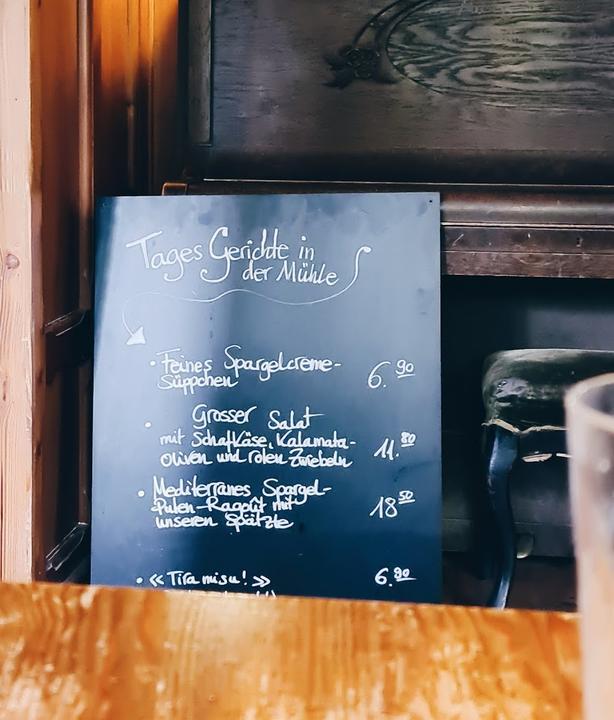 Tages Gerichte in
der Mühle
• Feines Spargelcreme- 6.90
Süppchen
• Grosser Salat
mit Schafkäse, Kalamata- 11.80
oliven und roten Zwiebeln
• Mediterranes Spargel-
Puten-Ragoût mit 18 50
unseren Spätzle
• « Tiramisu! » 6.90